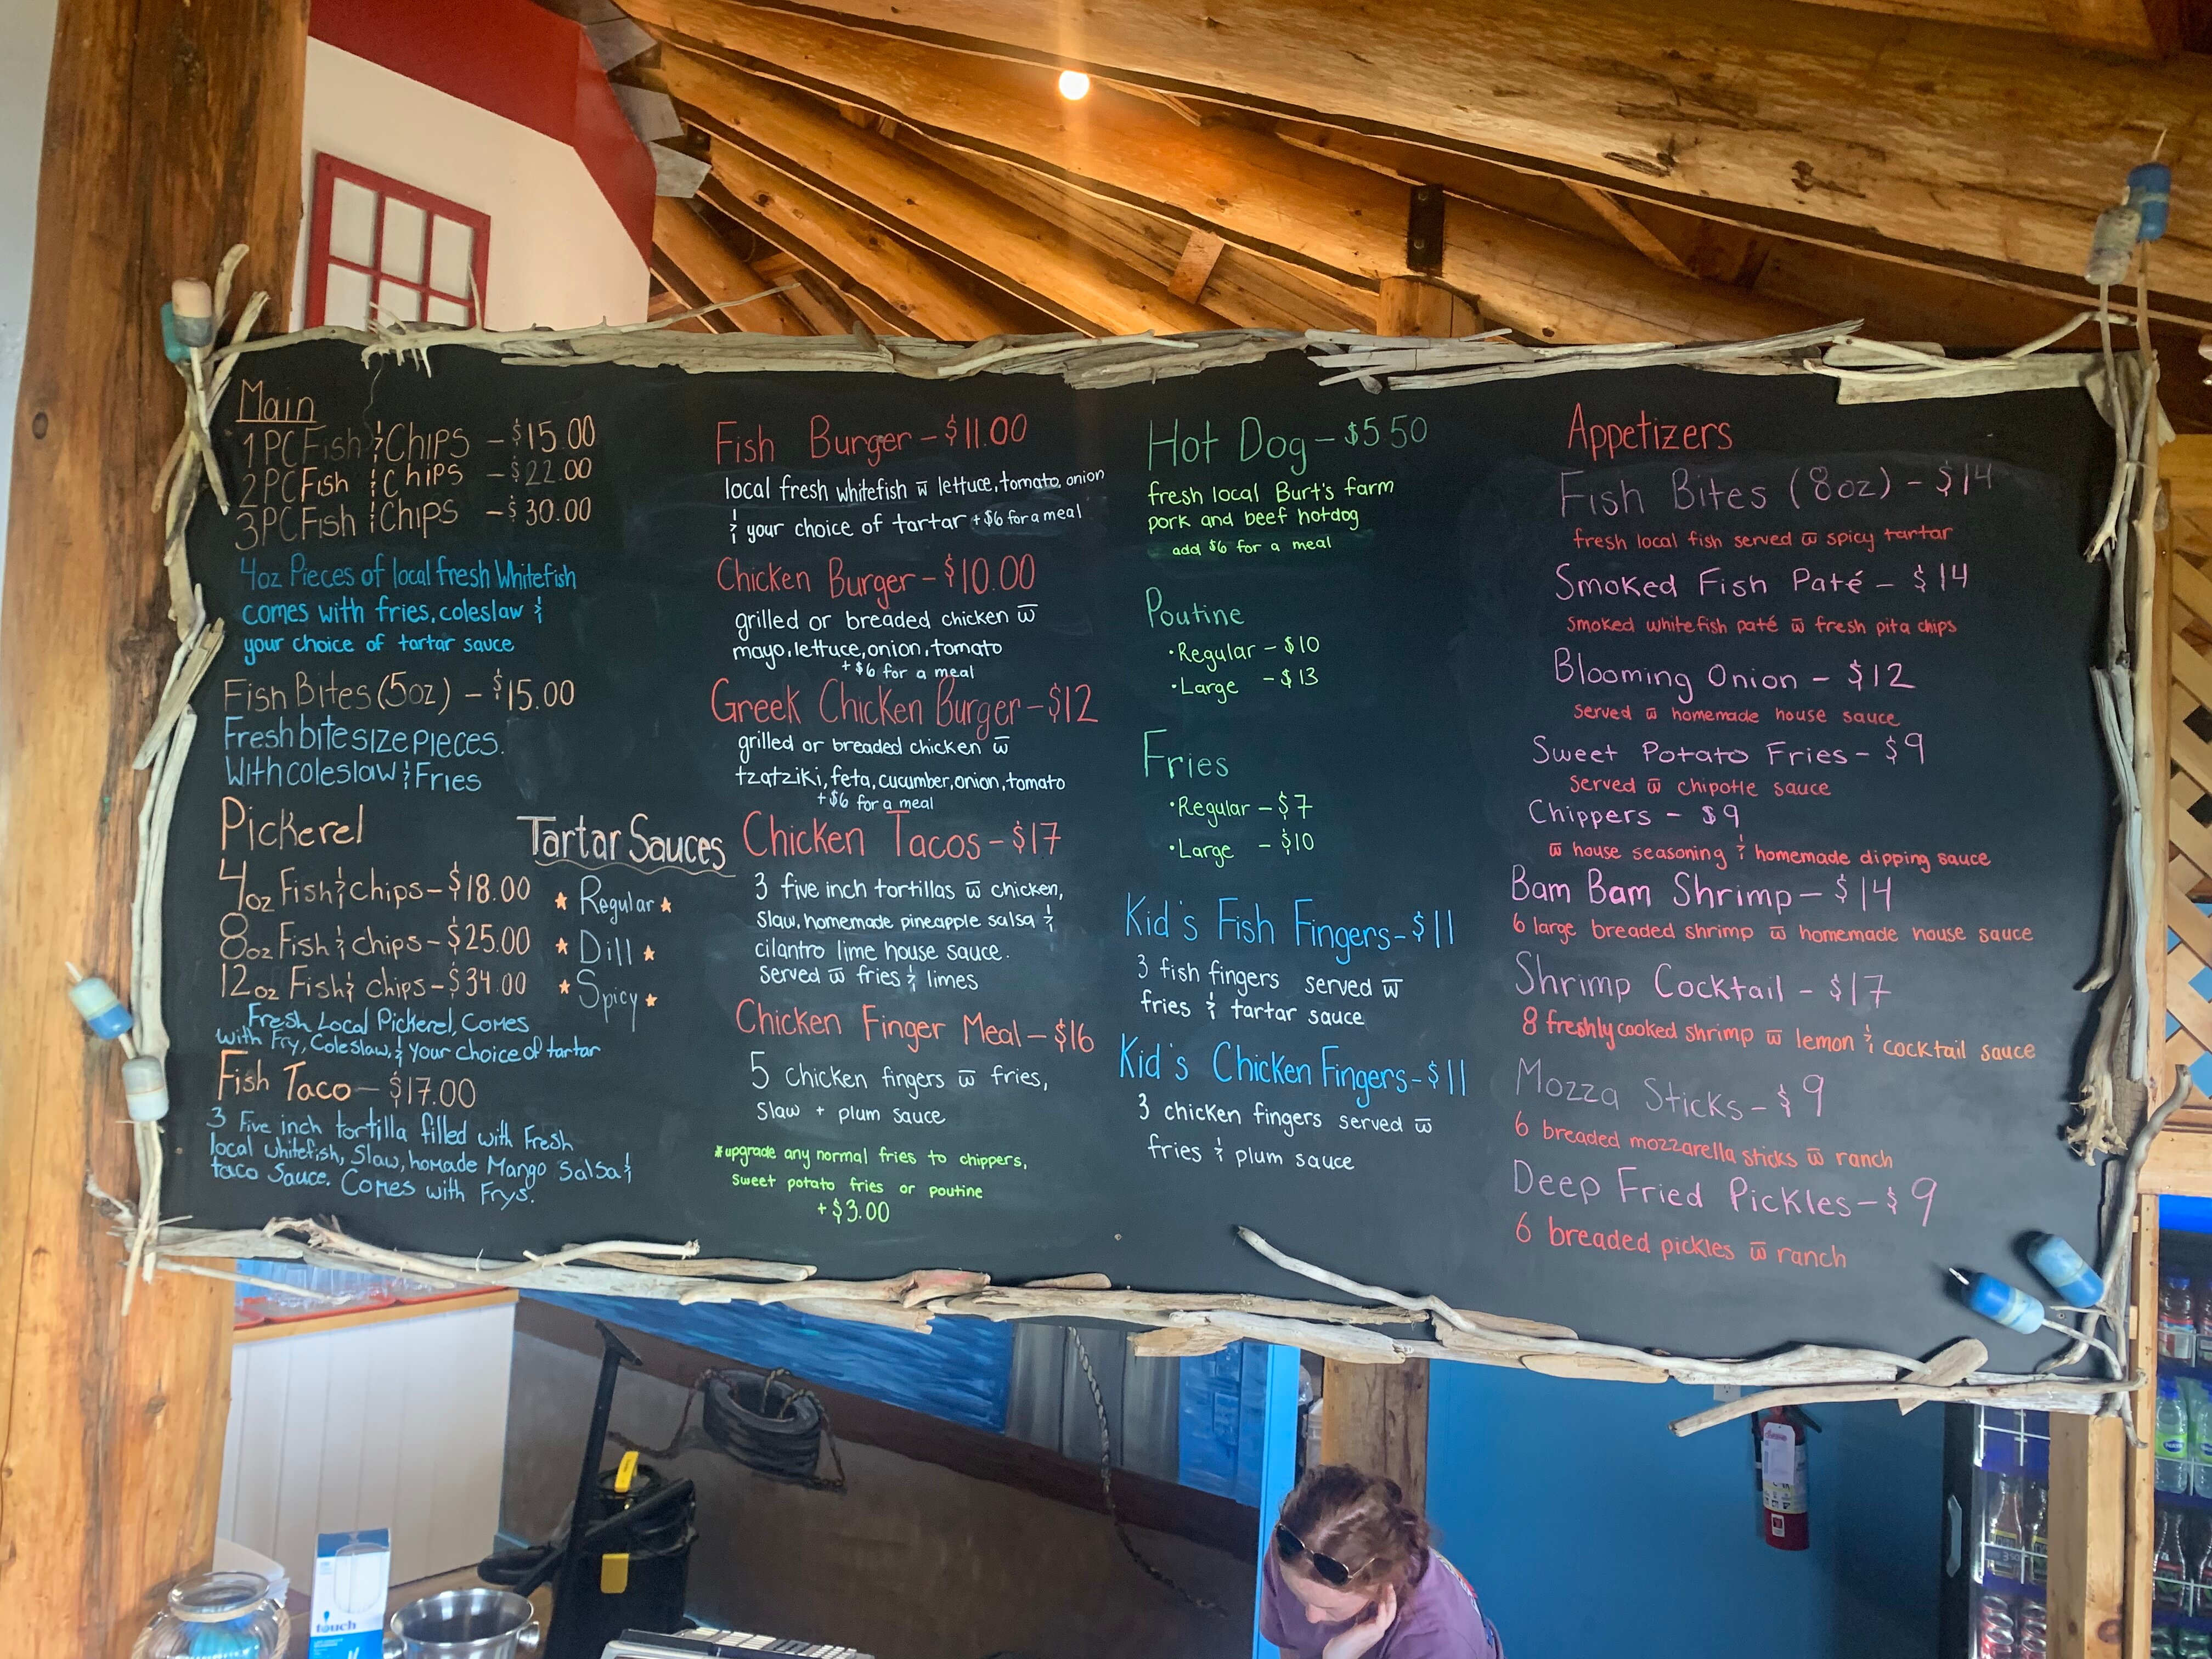 Main
1PC Fish & Chips - $15.00
2PC Fish & Chips - $22.00
3PC Fish & Chips - $30.00
4oz Pieces of local fresh Whitefish
comes with fries, coleslaw &
your choice of tartar sauce
Fish Bites (5oz) - $15.00
Fresh bite size pieces.
With coleslaw & Fries
Pickerel
4oz Fish & Chips - $18.00
8oz Fish & chips - $25.00
12oz Fish & chips - $34.00
Fresh Local Pickerel, Comes
with Fry, Coleslaw, & your choice of tartar
Fish Taco - $17.00
3 Five inch tortilla filled with Fresh
local whitefish, Slaw, homade Mango Salsa &
taco Sauce. Comes with Frys.
Tartar Sauces
★ Regular ★
★ Dill ★
★ Spicy ★
Fish Burger - $11.00
local fresh whitefish w̅ lettuce, tomato, onion
& your choice of tartar +$6 for a meal
Chicken Burger - $10.00
grilled or breaded chicken w̅
mayo, lettuce, onion, tomato
+$6 for a meal
Greek Chicken Burger - $12
grilled or breaded chicken w̅
tzatziki, feta, cucumber, onion, tomato
+$6 for a meal
Chicken Tacos - $17
3 five inch tortillas w̅ chicken,
slaw, homemade pineapple salsa &
cilantro lime house sauce.
served w̅ fries & limes
Chicken Finger Meal - $16
5 chicken fingers w̅ fries,
slaw + plum sauce
*upgrade any normal fries to chippers,
sweet potato fries or poutine
+$3.00
Hot Dog - $5.50
fresh local Burt's farm
pork and beef hotdog
add $6 for a meal
Poutine
• Regular - $10
• Large - $13
Fries
• Regular - $7
• Large - $10
Kid's Fish Fingers - $11
3 fish fingers served w̅
fries & tartar sauce
Kid's Chicken Fingers - $11
3 chicken fingers served w̅
fries & plum sauce
Appetizers
Fish Bites (8oz) - $14
fresh local fish served w̅ spicy tartar
Smoked Fish Paté - $14
smoked whitefish paté w̅ fresh pita chips
Blooming Onion - $12
served w̅ homemade house sauce
Sweet Potato Fries - $9
served w̅ chipotle sauce
Chippers - $9
w̅ house seasoning & homemade dipping sauce
Bam Bam Shrimp - $14
6 large breaded shrimp w̅ homemade house sauce
Shrimp Cocktail - $17
8 freshly cooked shrimp w̅ lemon & cocktail sauce
Mozza Sticks - $9
6 breaded mozzarella sticks w̅ ranch
Deep Fried Pickles - $9
6 breaded pickles w̅ ranch
touch